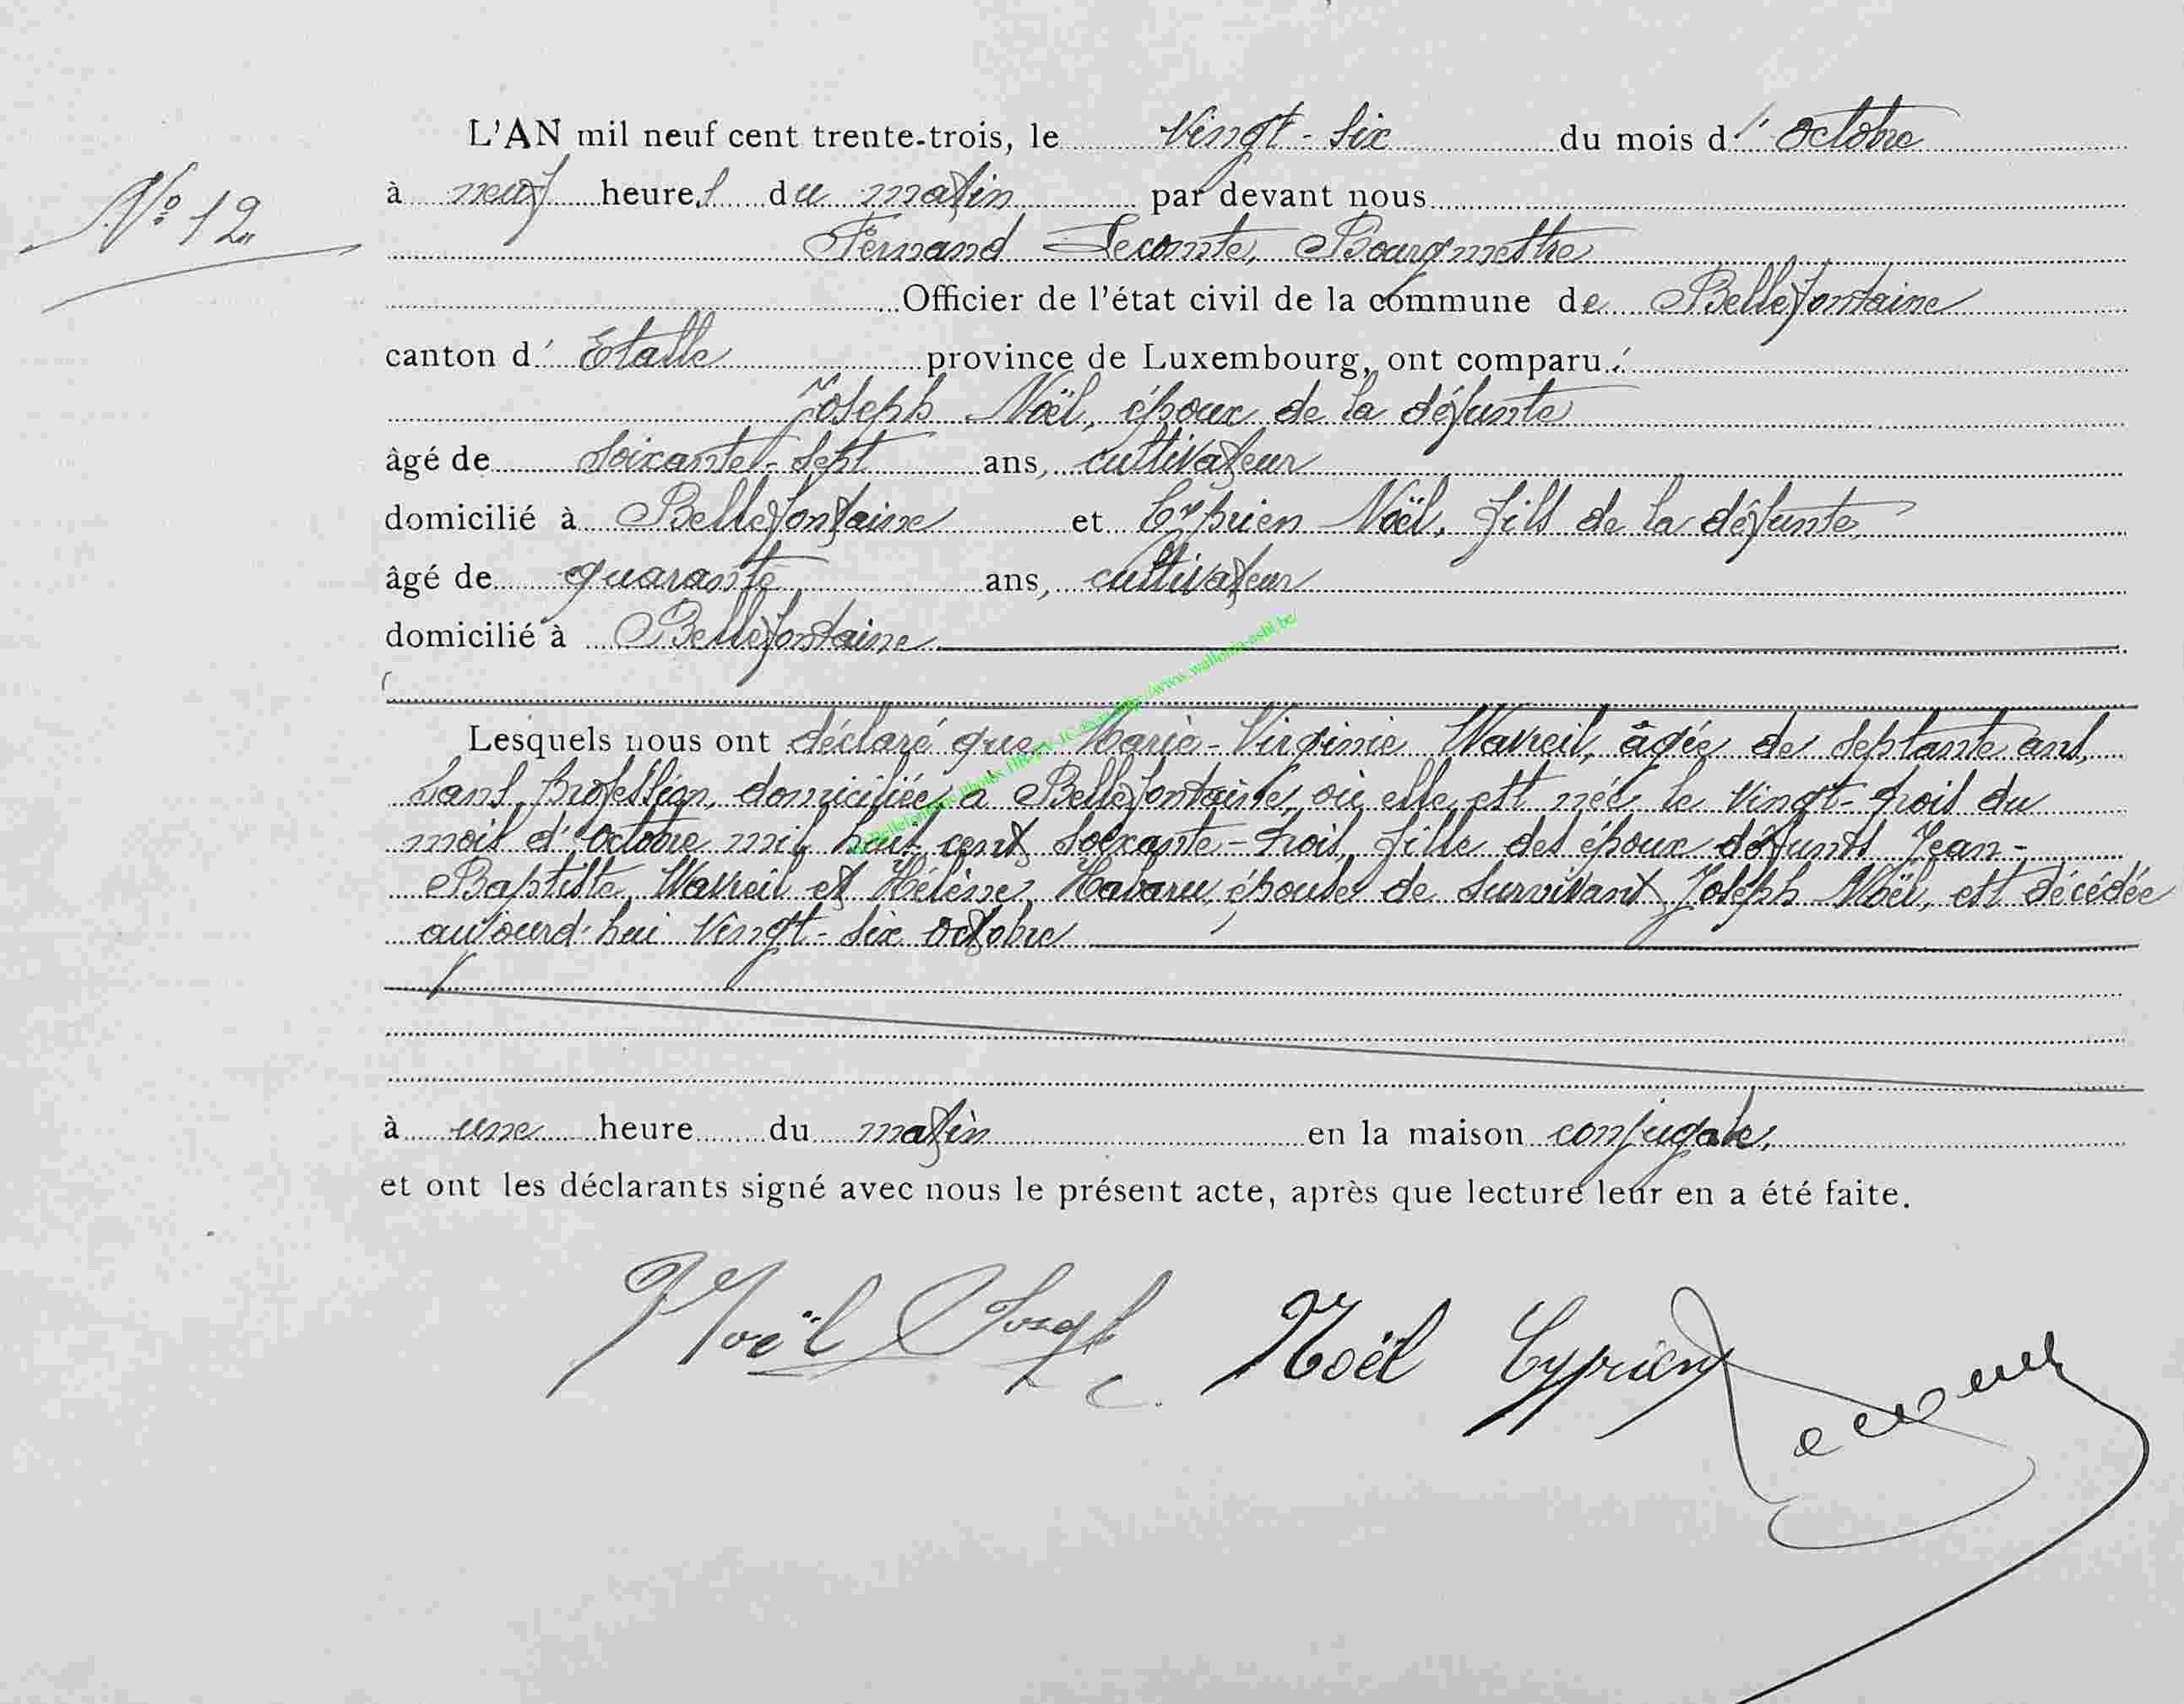 L'AN mil neuf cent trente-trois, le vingt-six du mois d' octobre
N° 12
à neuf heures du matin par devant nous
Fernand Lecomte, Bourgmestre
Officier de l'état civil de la commune de Bellefontaine
canton d' Etalle province de Luxembourg, ont comparu :
Joseph Noël, époux de la défunte
âgé de soixante-sept ans, cultivateur
domicilié à Bellefontaine et Cyprien Noël, fils de la défunte,
âgé de quarante ans, cultivateur
domicilié à Bellefontaine
Lesquels nous ont déclaré que Marie-Virginie Wavreil, âgée de septante ans,
sans profession, domiciliée à Bellefontaine, où elle est née le vingt-trois du
mois d'octobre mil huit cent soixante-trois, fille des époux défunts Jean-
Baptiste Wavreil et Hélène Habaru, épouse de survivant Joseph Noël, est décédée
aujourd'hui vingt-six octobre
à une heure du matin en la maison conjugale,
et ont les déclarants signé avec nous le présent acte, après que lecture leur en a été faite.
Noël Joseph Noël Cyprien